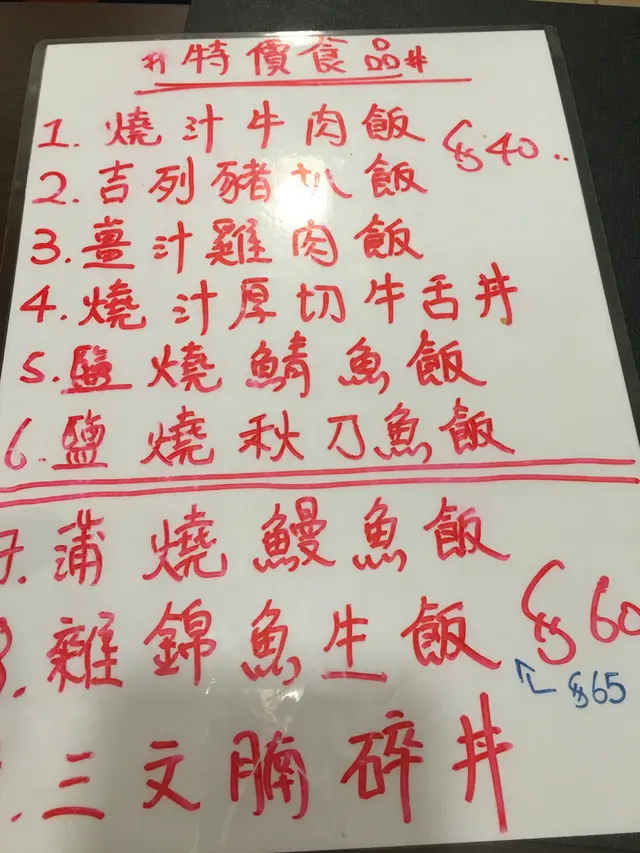 #特價食品#
1. 燒汁牛肉飯
$40..
2. 吉列豬扒飯
3. 薑汁雞肉飯
4. 燒汁厚切牛舌丼
5. 鹽燒鯖魚飯
6. 鹽燒秋刀魚飯
7. 蒲燒鰻魚飯
8. 雜錦魚生飯
$60
$65
. 三文腩碎丼